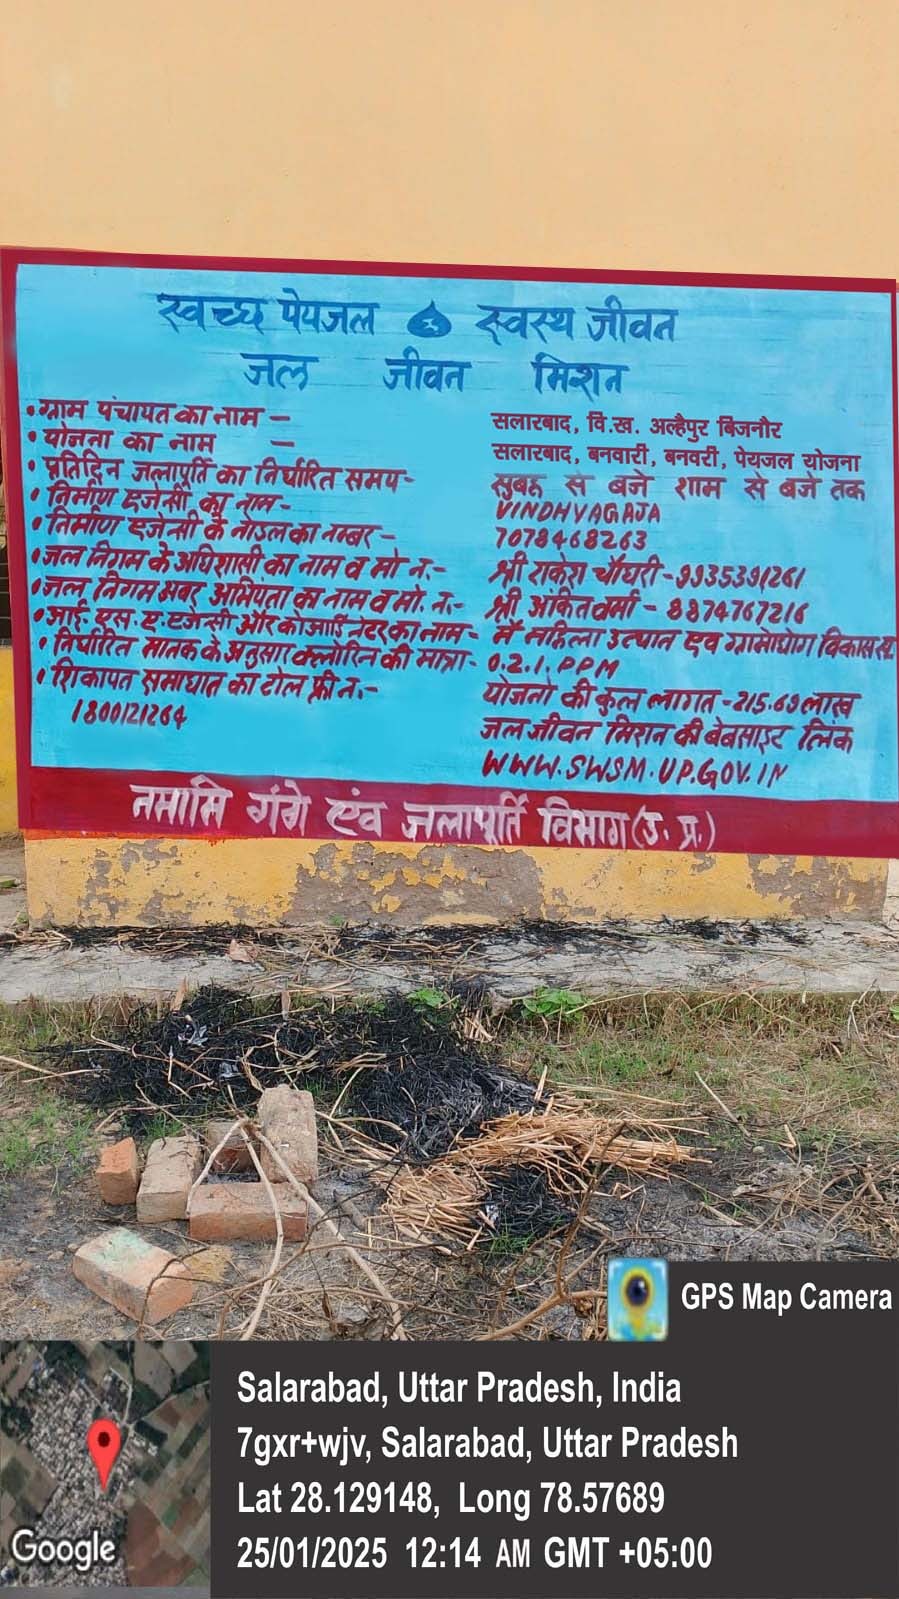 स्वच्छ पेयजल स्वस्थ जीवन
जल जीवन मिशन
• ग्राम पंचायत का नाम – सलारबाद, वि.ख. अल्हैपुर बिजनौर
• योजना का नाम – सलारबाद, बनवारी, बनवरी, पेयजल योजना
• प्रतिदिन जलापूर्ति का निर्धारित समय- सुबह से बजे शाम से बजे तक
• निर्माण एजेन्सी का नाम- VINDHYAGAJA
• निर्माण एजेन्सी के नोडल का नम्बर- 7078468263
• जल निगम के अधिशासी का नाम व मो न.- श्री राकेश चौधरी-9935391261
• जल निगम अवर अभियंता का नाम व मो. न.- श्री अंकित वर्मा - 8874767216
• आई. एस. ए. एजेन्सी और कोआर्डिनेटर का नाम- मै महिला उत्थान एवं ग्रामोद्योग विकास स.
• निर्धारित मानक के अनुसार क्लोरिन की मात्रा- 0.2.1. PPM
• शिकायत समाधान का टोल फ्री न.-
1800121264
योजना की कुल लागत -215.69 लाख
जल जीवन मिशन की बेबसाइट लिंक
WWW.SWSM.UP.GOV.IN
नमामि गंगे एंव जलापूर्ति विभाग (उ. प्र.)
GPS Map Camera
Salarabad, Uttar Pradesh, India
7gxr+wjv, Salarabad, Uttar Pradesh
Lat 28.129148, Long 78.57689
25/01/2025 12:14 AM GMT +05:00
Google